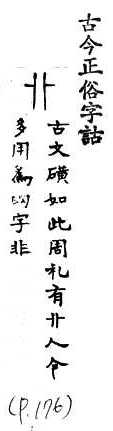 古今正俗字詁
卝
古文磺如此周礼有卝人今
多用為卯字非
(P.176)